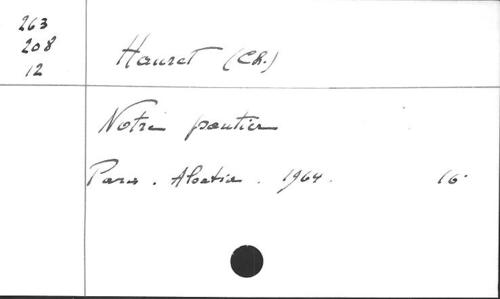 263
208
12
Hauret (Ch.)
Notre psautier
Paris. Alsatia. 1964. 16°